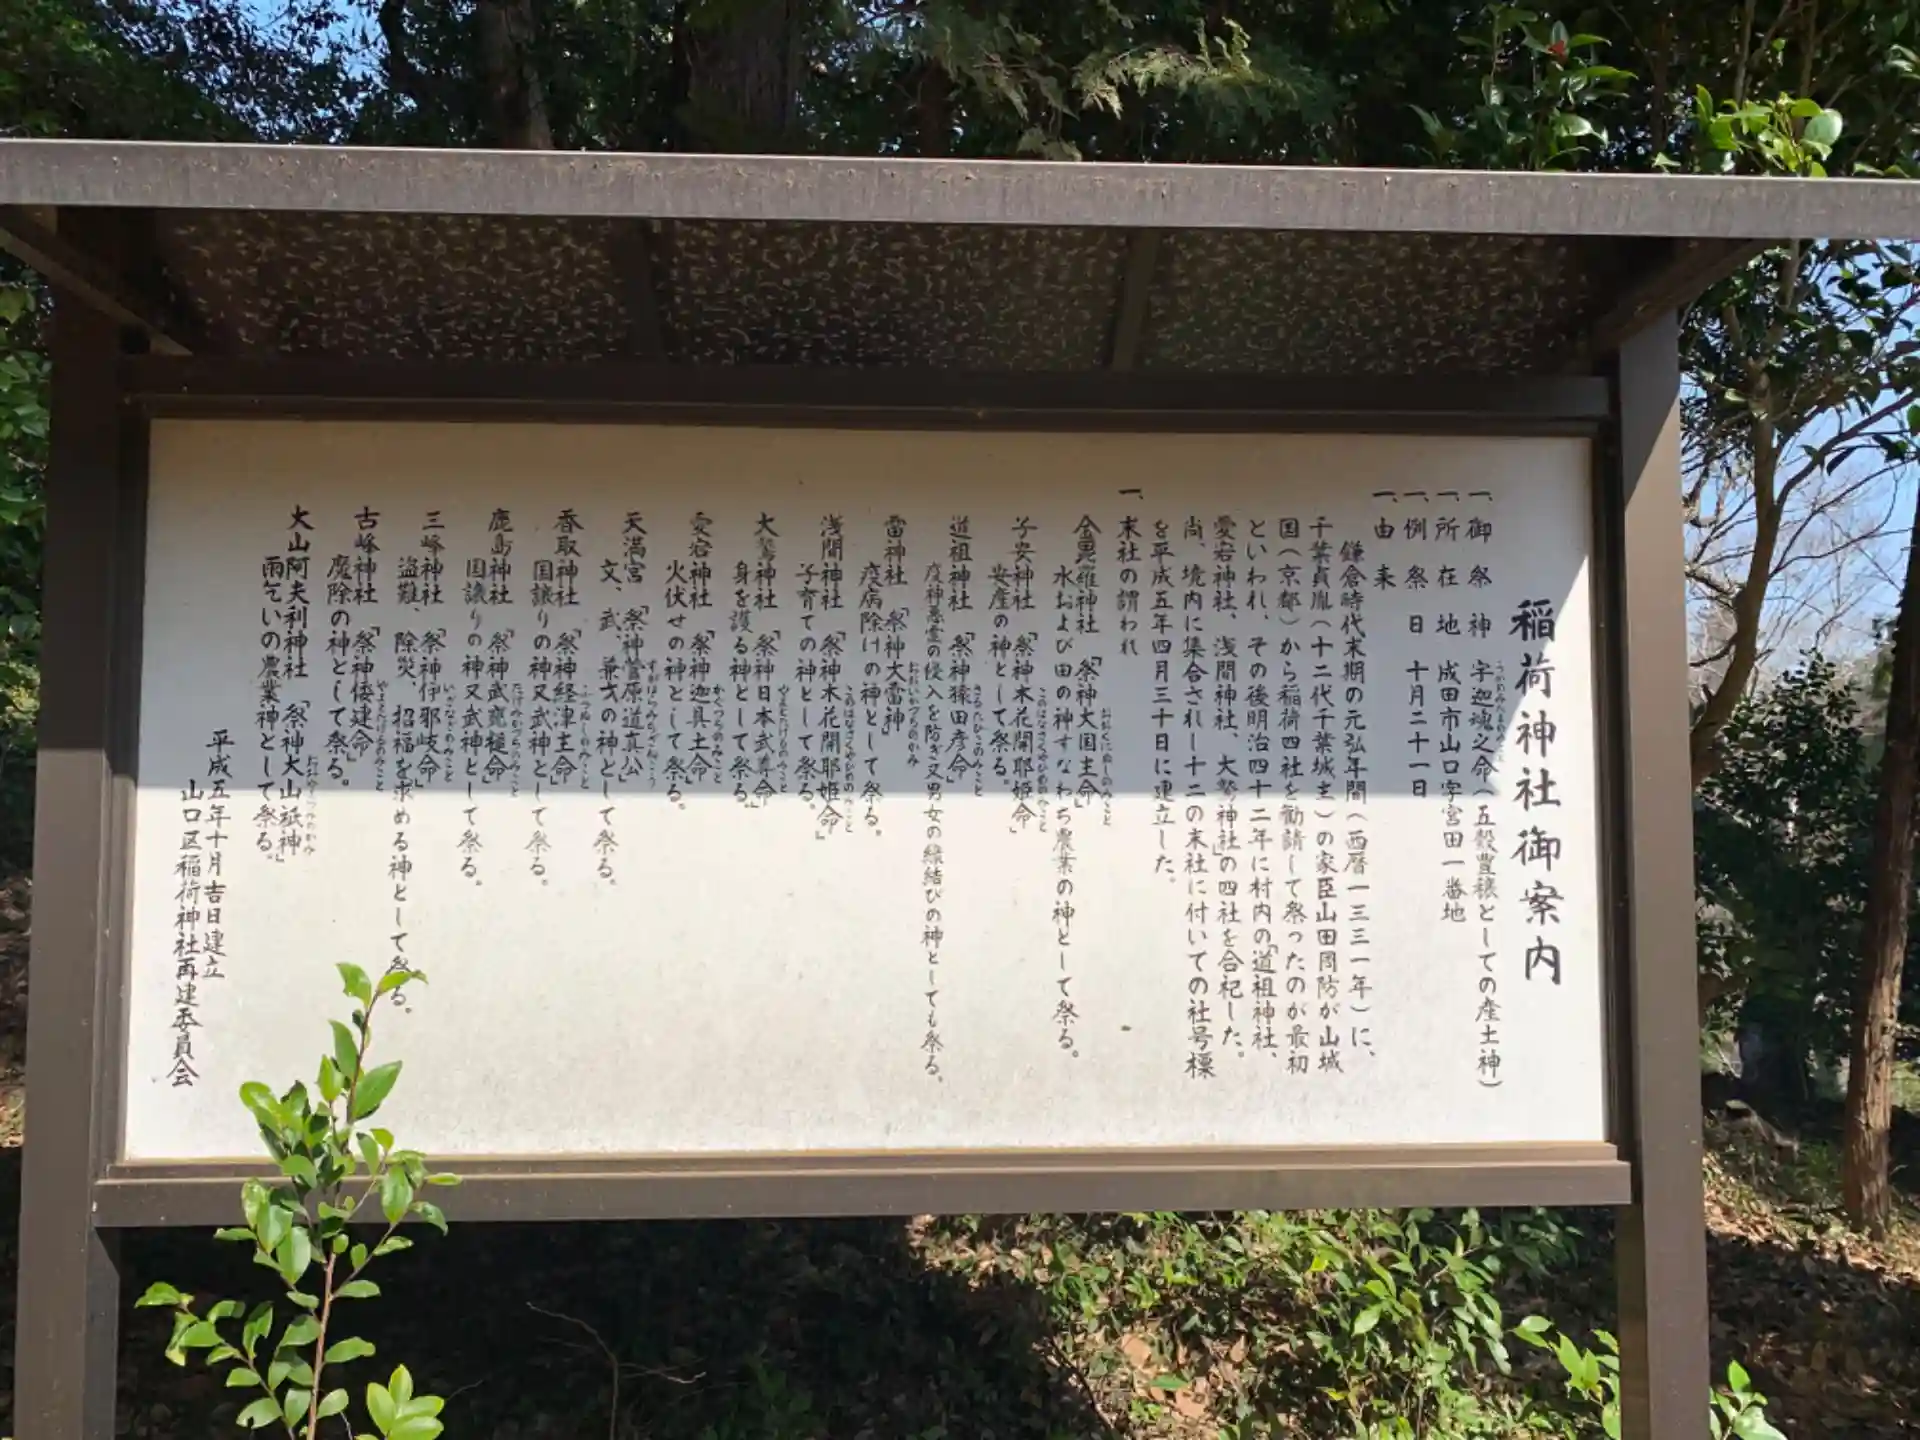 稲荷神社御案内
一、御祭神 宇迦魂之命(五穀豊穣としての産土神)
一、所在地 成田市山口字宮田一番地
一、例祭日 十月二十一日
一、由来
鎌倉時代末期の元弘年間(西暦一三三一年)に、
千葉貞胤(十二代千葉城主)の家臣山田周防が山城
国(京都)から稲荷四社を勧請して祭ったのが最初
といわれ、その後明治四十二年に村内の「道祖神社、
愛宕神社、浅間神社、大鷲神社」の四社を合祀した。
尚、境内に集合されし十二の末社に付いての社号標
を平成五年四月三十日に建立した。
一、末社の謂われ
金毘羅神社「祭神大国主命」おおくにぬしのみこと
水および田の神すなわち農業の神として祭る。
子安神社「祭神木花開耶姫命」このはなさくやひめのみこと
安産の神として祭る。
道祖神社「祭神猿田彦命」さるたひこのみこと
疫神悪霊の侵入を防ぎ又男女の縁結びの神としても祭る。
雷神社「祭神大雷神」おおいかづちのかみ
疫病除けの神として祭る。
浅間神社「祭神木花開耶姫命」このはなさくやひめのみこと
子育ての神として祭る。
大鷲神社「祭神日本武尊命」やまとたけるのみこと
身を護る神として祭る。
愛宕神社「祭神迦具土命」かぐつちのみこと
火伏せの神として祭る。
天満宮「祭神菅原道真公」すがはらみちざねこう
文、武、兼才の神として祭る。
香取神社「祭神経津主命」ふつぬしのみこと
国譲りの神又武神として祭る。
鹿島神社「祭神武甕槌命」たけみかづちのみこと
国譲りの神又武神として祭る。
三峰神社「祭神伊耶岐命」いざなぎのみこと
盗難、除災、招福を求める神として祭る。
古峰神社「祭神倭建命」やまとたけるのみこと
魔除の神として祭る。
大山阿夫利神社「祭神大山祇神」おおやまつみのかみ
雨乞いの農業神として祭る。
平成五年十月吉日建立
山口区稲荷神社再建委員会